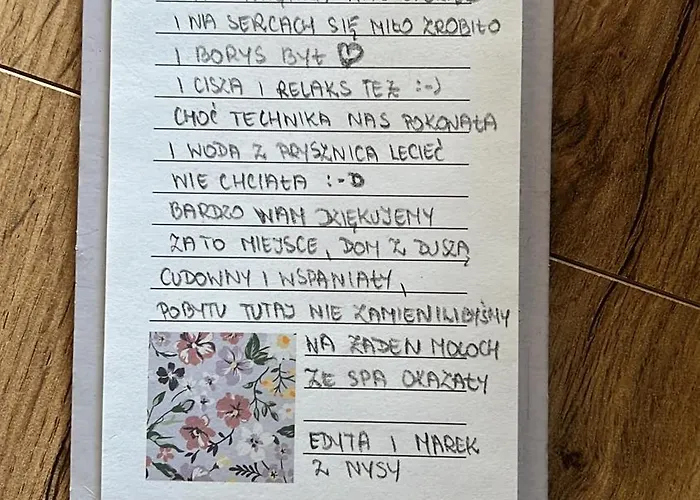 I NA SERCACH SIĘ MIŁO ZROBIŁO
I BORYS BYŁ ♡
I CISZA I RELAKS TEŻ :-)
CHOĆ TECHNIKA NAS POKONAŁA
I WODA Z PRYSZNICA LECIEĆ
NIE CHCIAŁA :-D
BARDZO WAM DZIĘKUJEMY
ZA TO MIEJSCE, DOM Z DUSZĄ
CUDOWNY I WSPANIAŁY,
POBYTU TUTAJ NIE ZAMIENILIBYŚMY
NA ŻADEN MOLOCH
ZE SPA OKAZAŁY
EDYTA I MAREK
Z NYSY